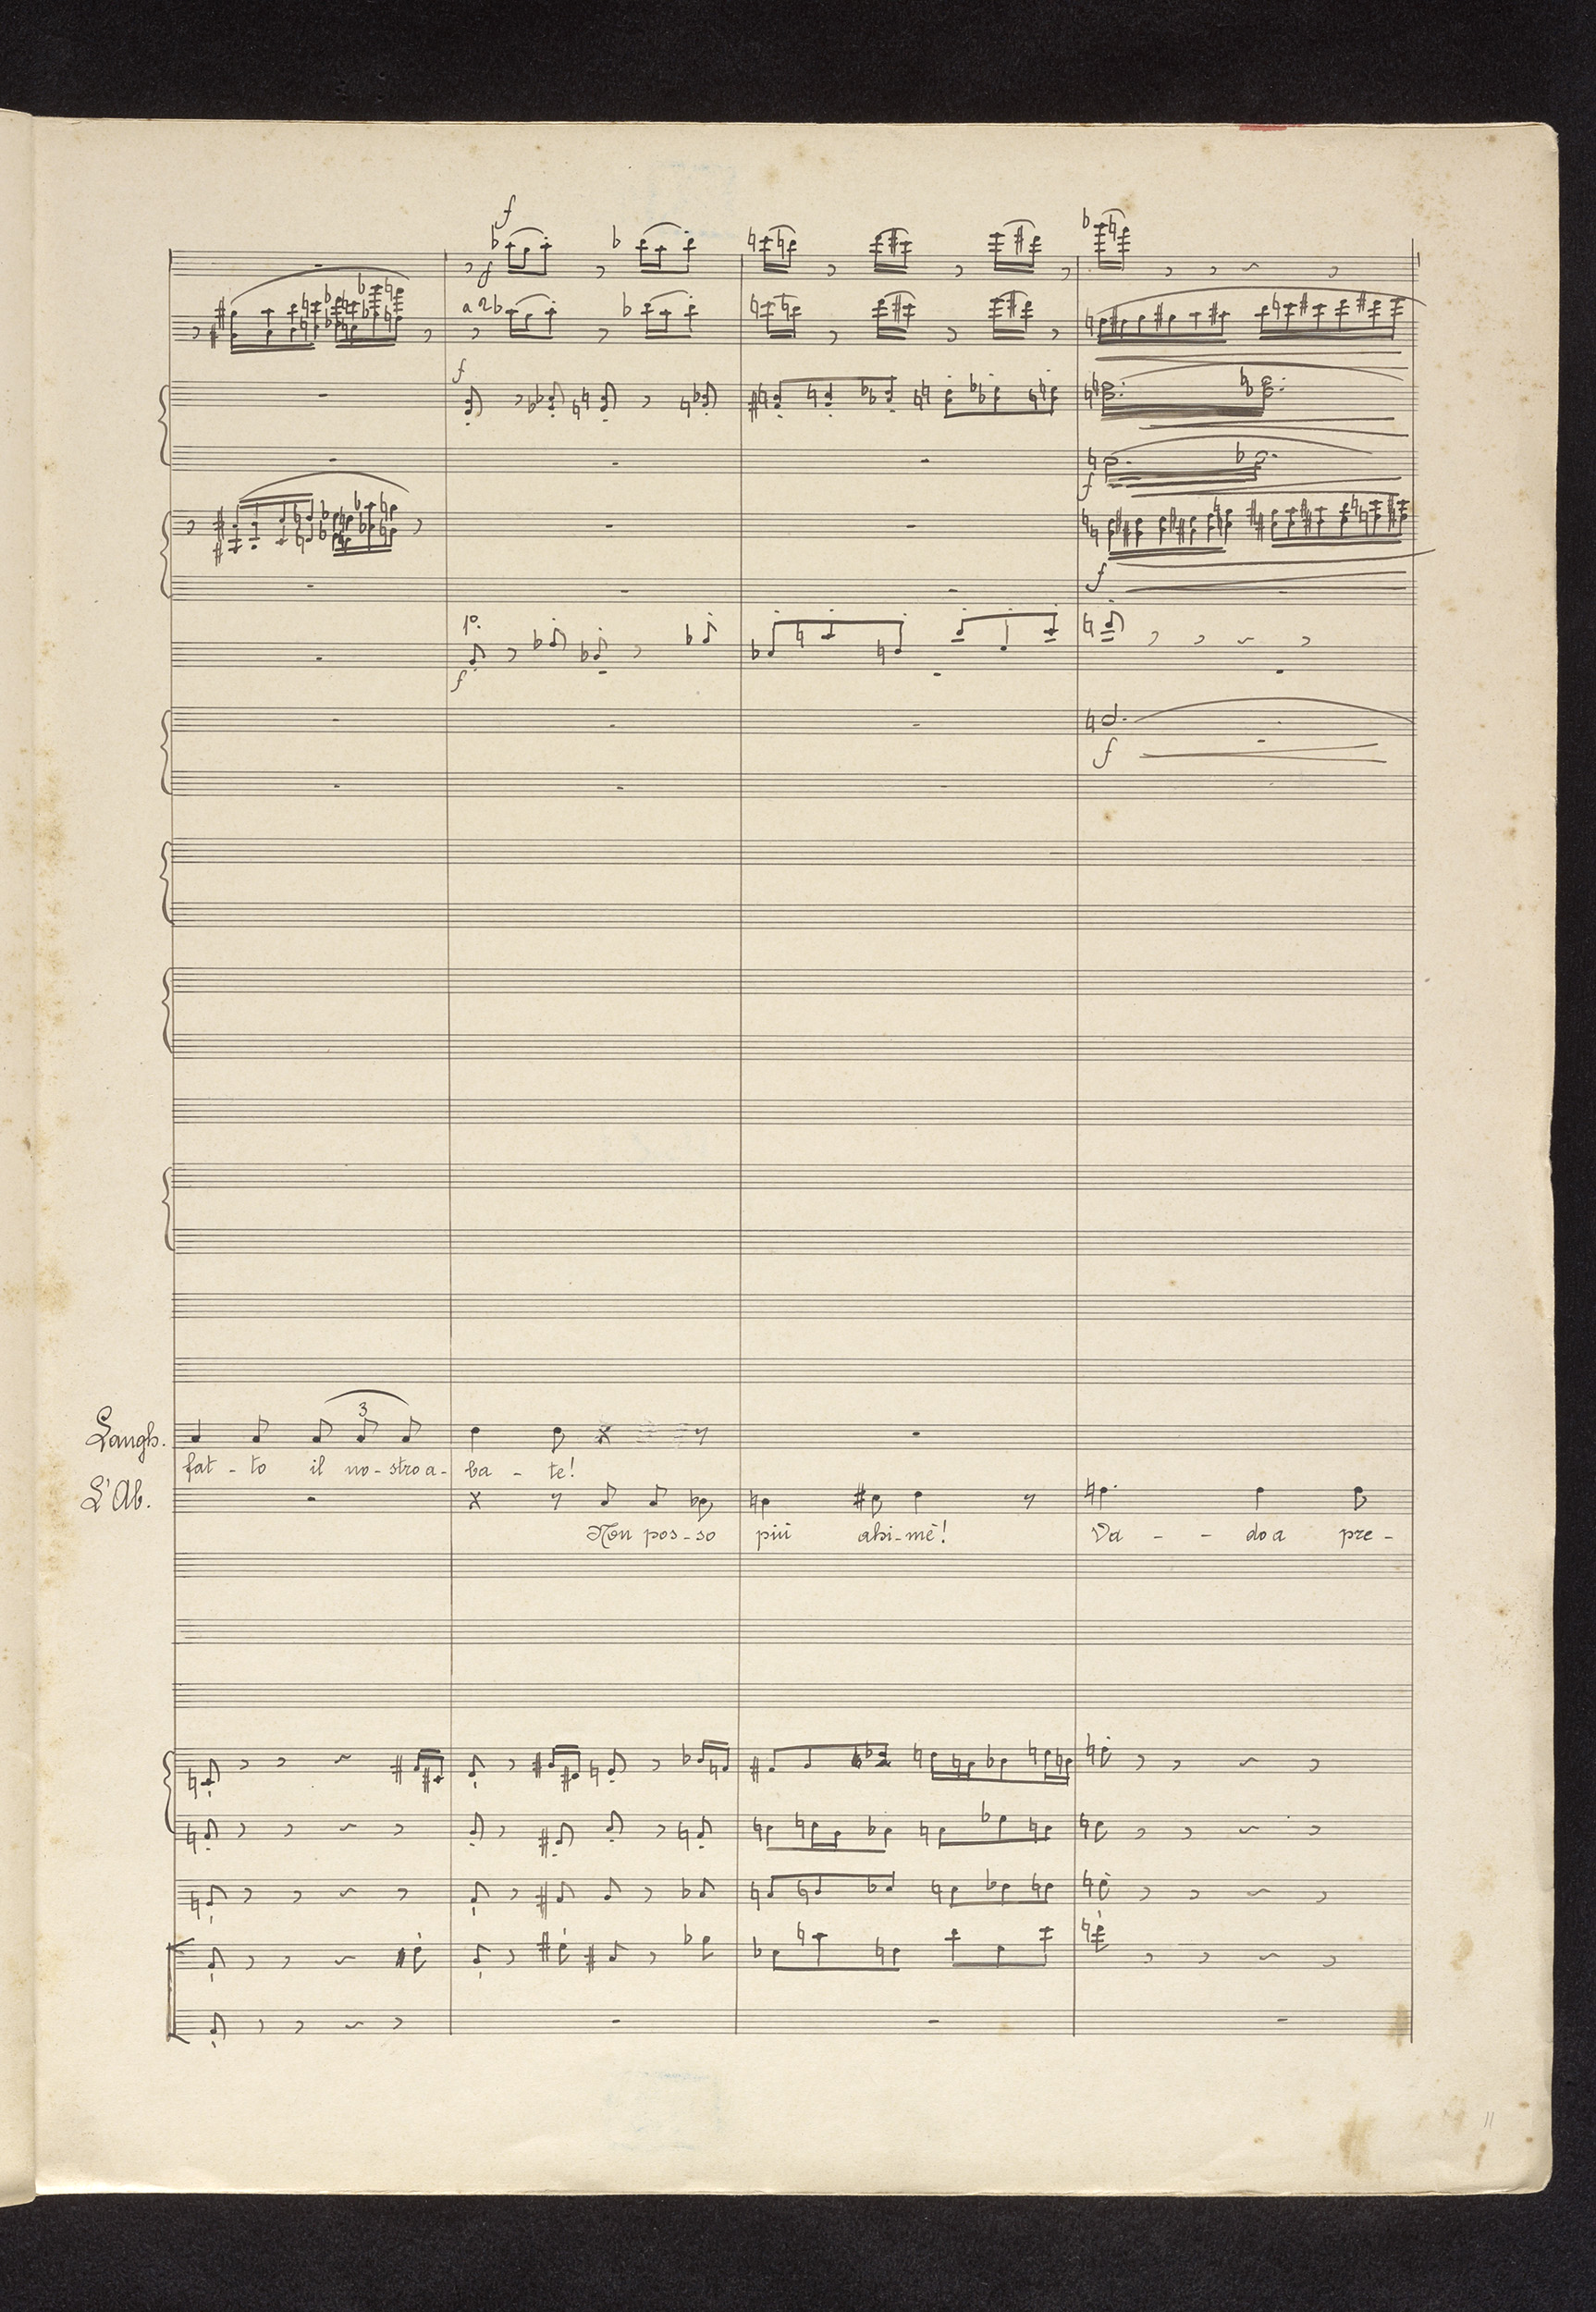 f
f
a 2
f
f
f
1º.
f
f
3
Langh.
fat - to il no - stro a - ba - te!
L'Ab.
Non pos - so più ahi - mè! Va - - do a pre -
11